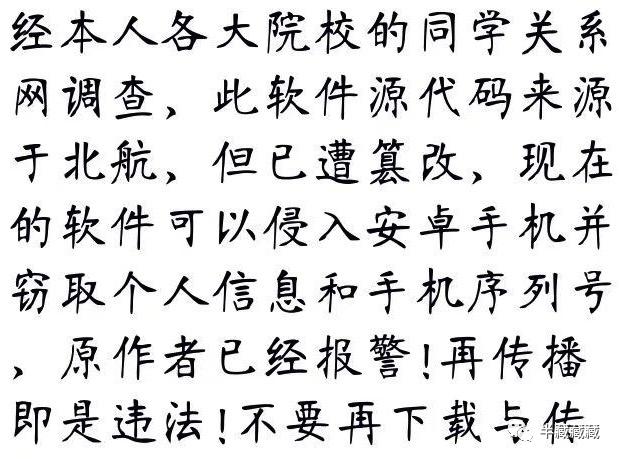 经本人各大院校的同学关系
网调查，此软件源代码来源
于北航，但已遭篡改，现在
的软件可以侵入安卓手机并
窃取个人信息和手机序列号
，原作者已经报警!再传播
即是违法!不要再下载与传
半藏藏藏